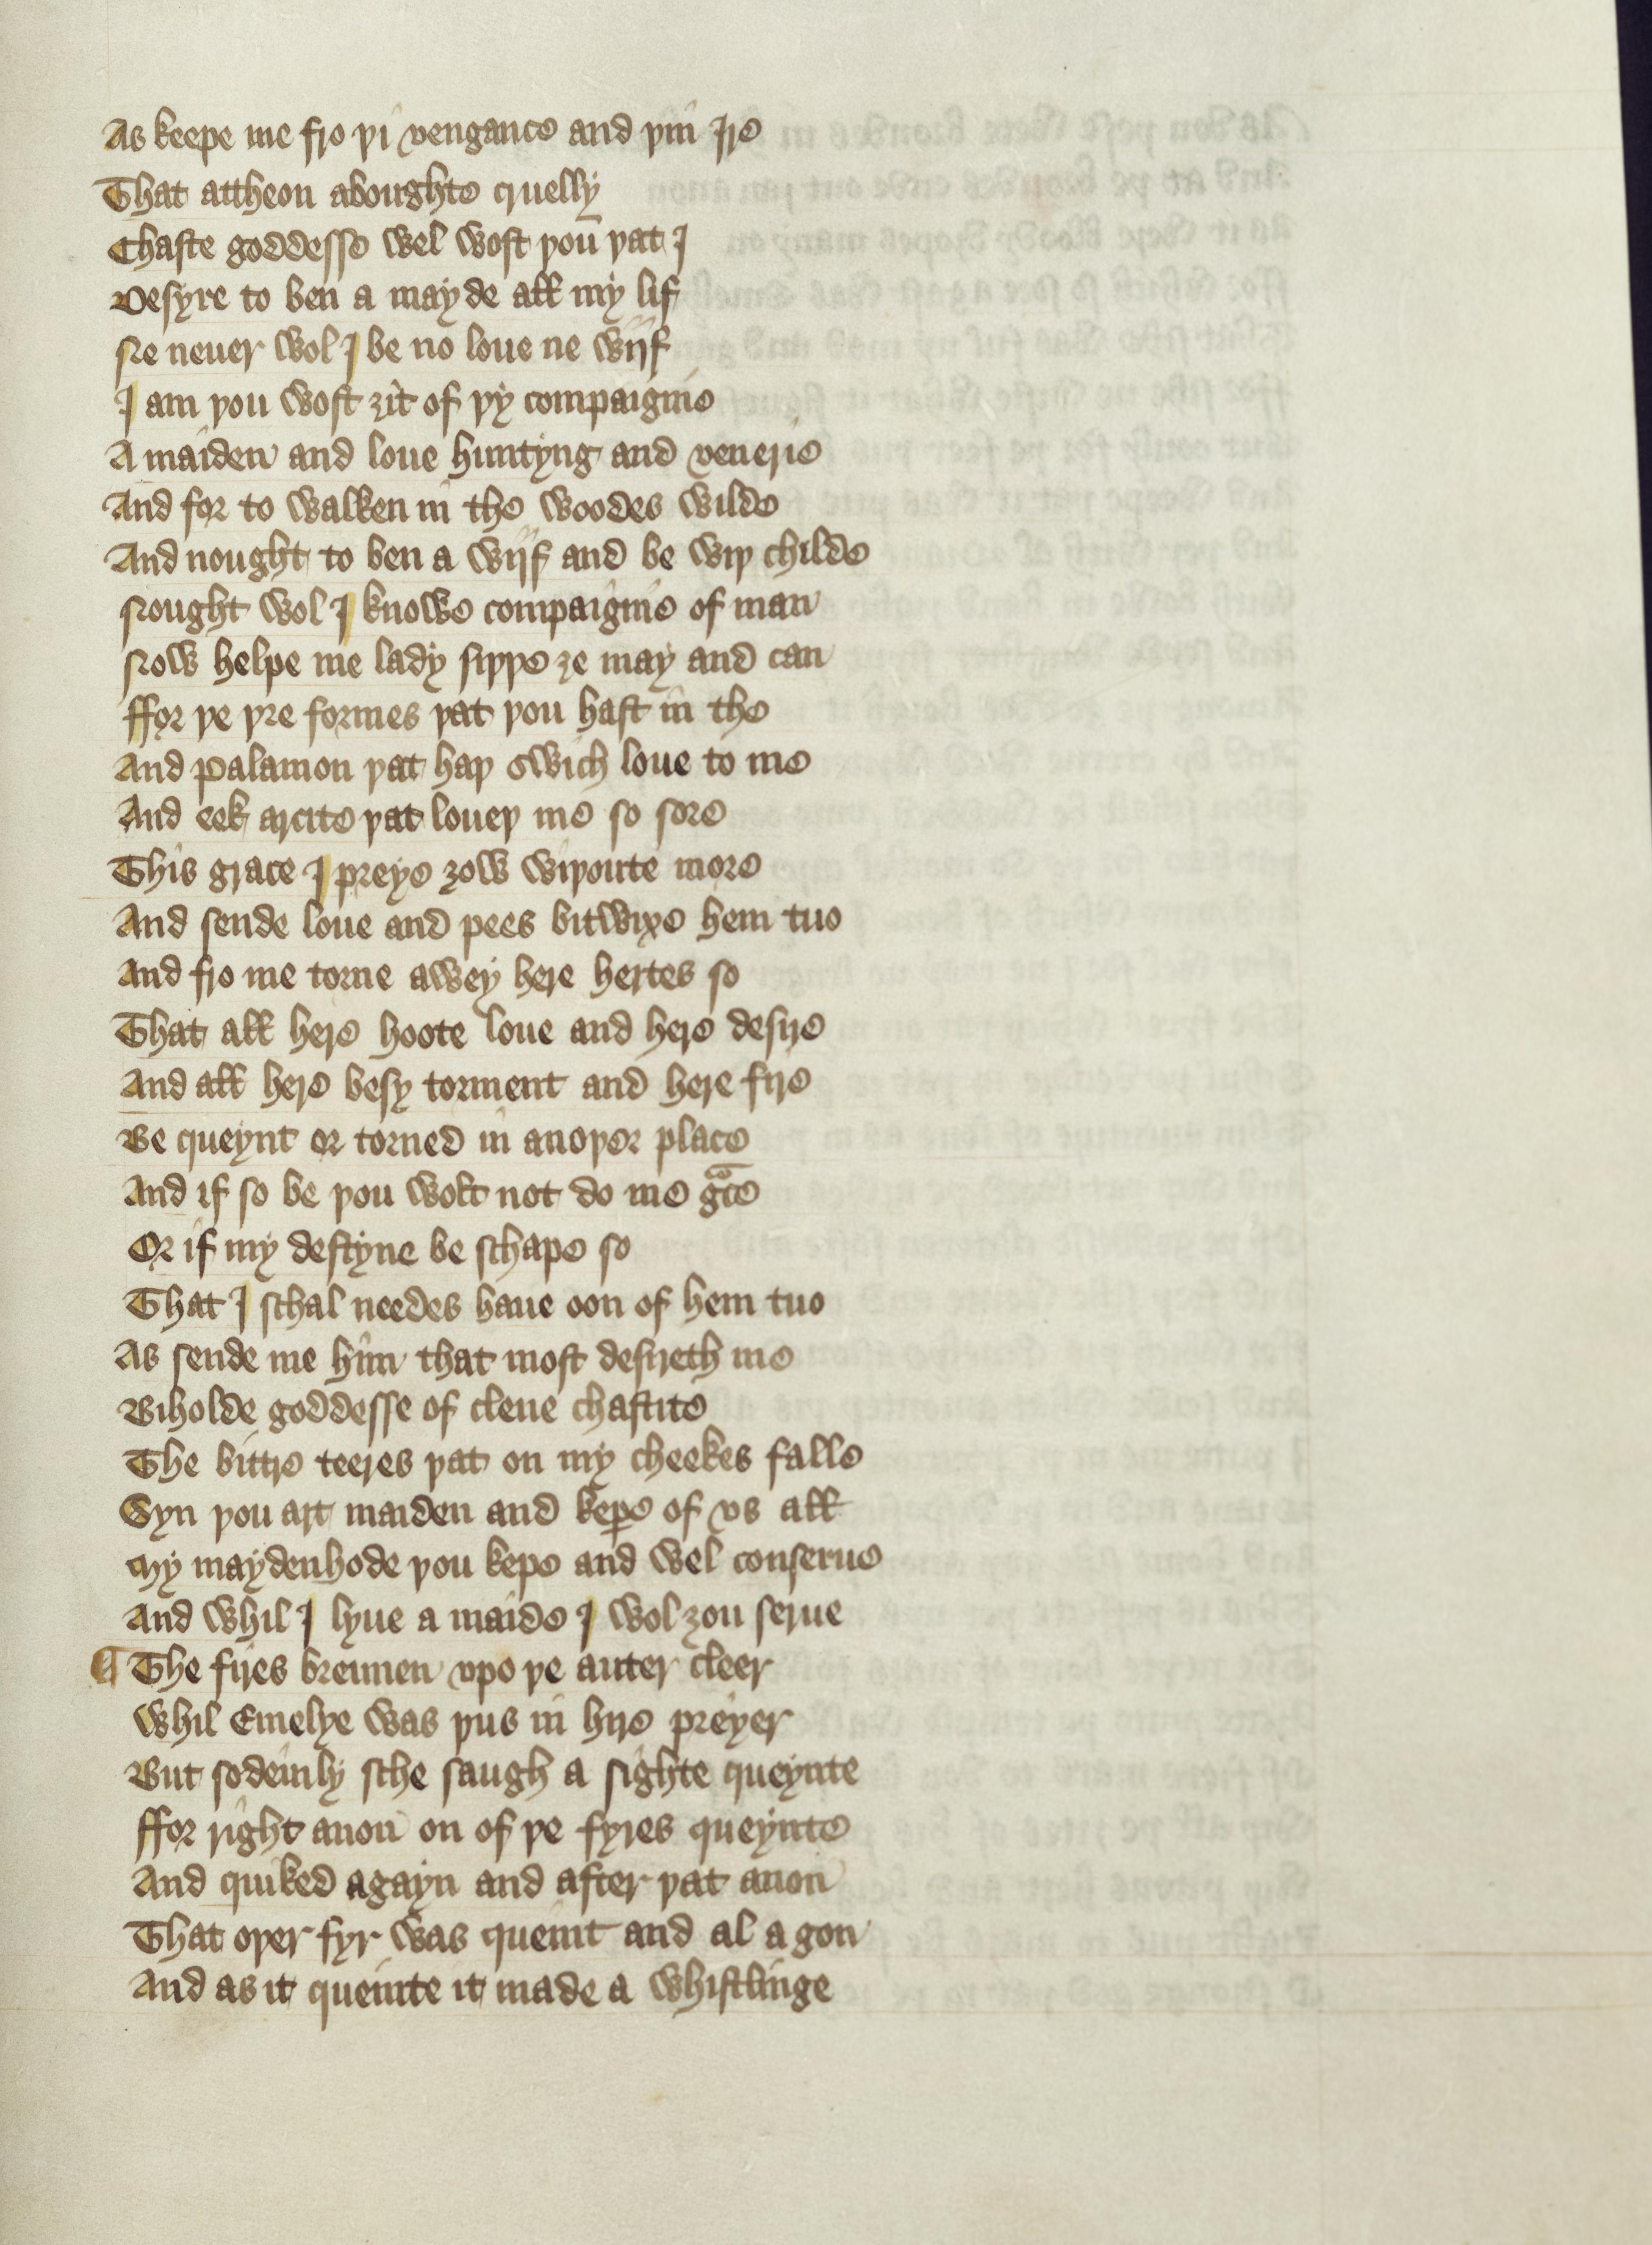 As keepe me fro þi vengance and þin Ire
That attheon aboughte cruelly
Chaste goddesse wel wost þou þat I
Desyre to ben a mayde all my lif
Ne neuer wol I be no loue ne wijf
I am þou wost ȝit of þy compaignie
A maiden and loue huntyng and venerie
And for to walken in the woodes wilde
And nought to ben a wijf and be wiþ childe
Nought wol I knowe compaignie of man
Now helpe me lady siþþe ȝe may and can
ffor þe þre formes þat þou hast in the
And Palamon þat haþ swich loue to me
And eek arcite þat loueþ me so sore
This grace I preye ȝow wiþoute more
And sende loue and pees bitwixe hem tuo
And fro me torne awey here hertes so
That all here hoote loue and here desire
And all here besy torment and here fire
Be queynt or torned in anoþer place
And if so be þou wolt not do me gͣce
Or if my destyne be schape so
That I schal needes haue oon of hem tuo
As sende me him that most desireth me
Biholde goddesse of clene chastite
The bittre teeres þat on my cheekes falle
Syn þou art maiden and keꝑe of vs all
My maydenhode þou kepe and wel conserue
And whil I lyue a maide I wol ȝou serue
¶ The fires brennen vpo þe auter cleer
Whil Emelye was þus in hire preyer
But sodeinly sche saugh a sighte queynte
ffor right anon on of þe fyres queynte
And quiked agayn and after þat anon
That oþer fyr was queint and al a gon
And as it queinte it made a whistlinge